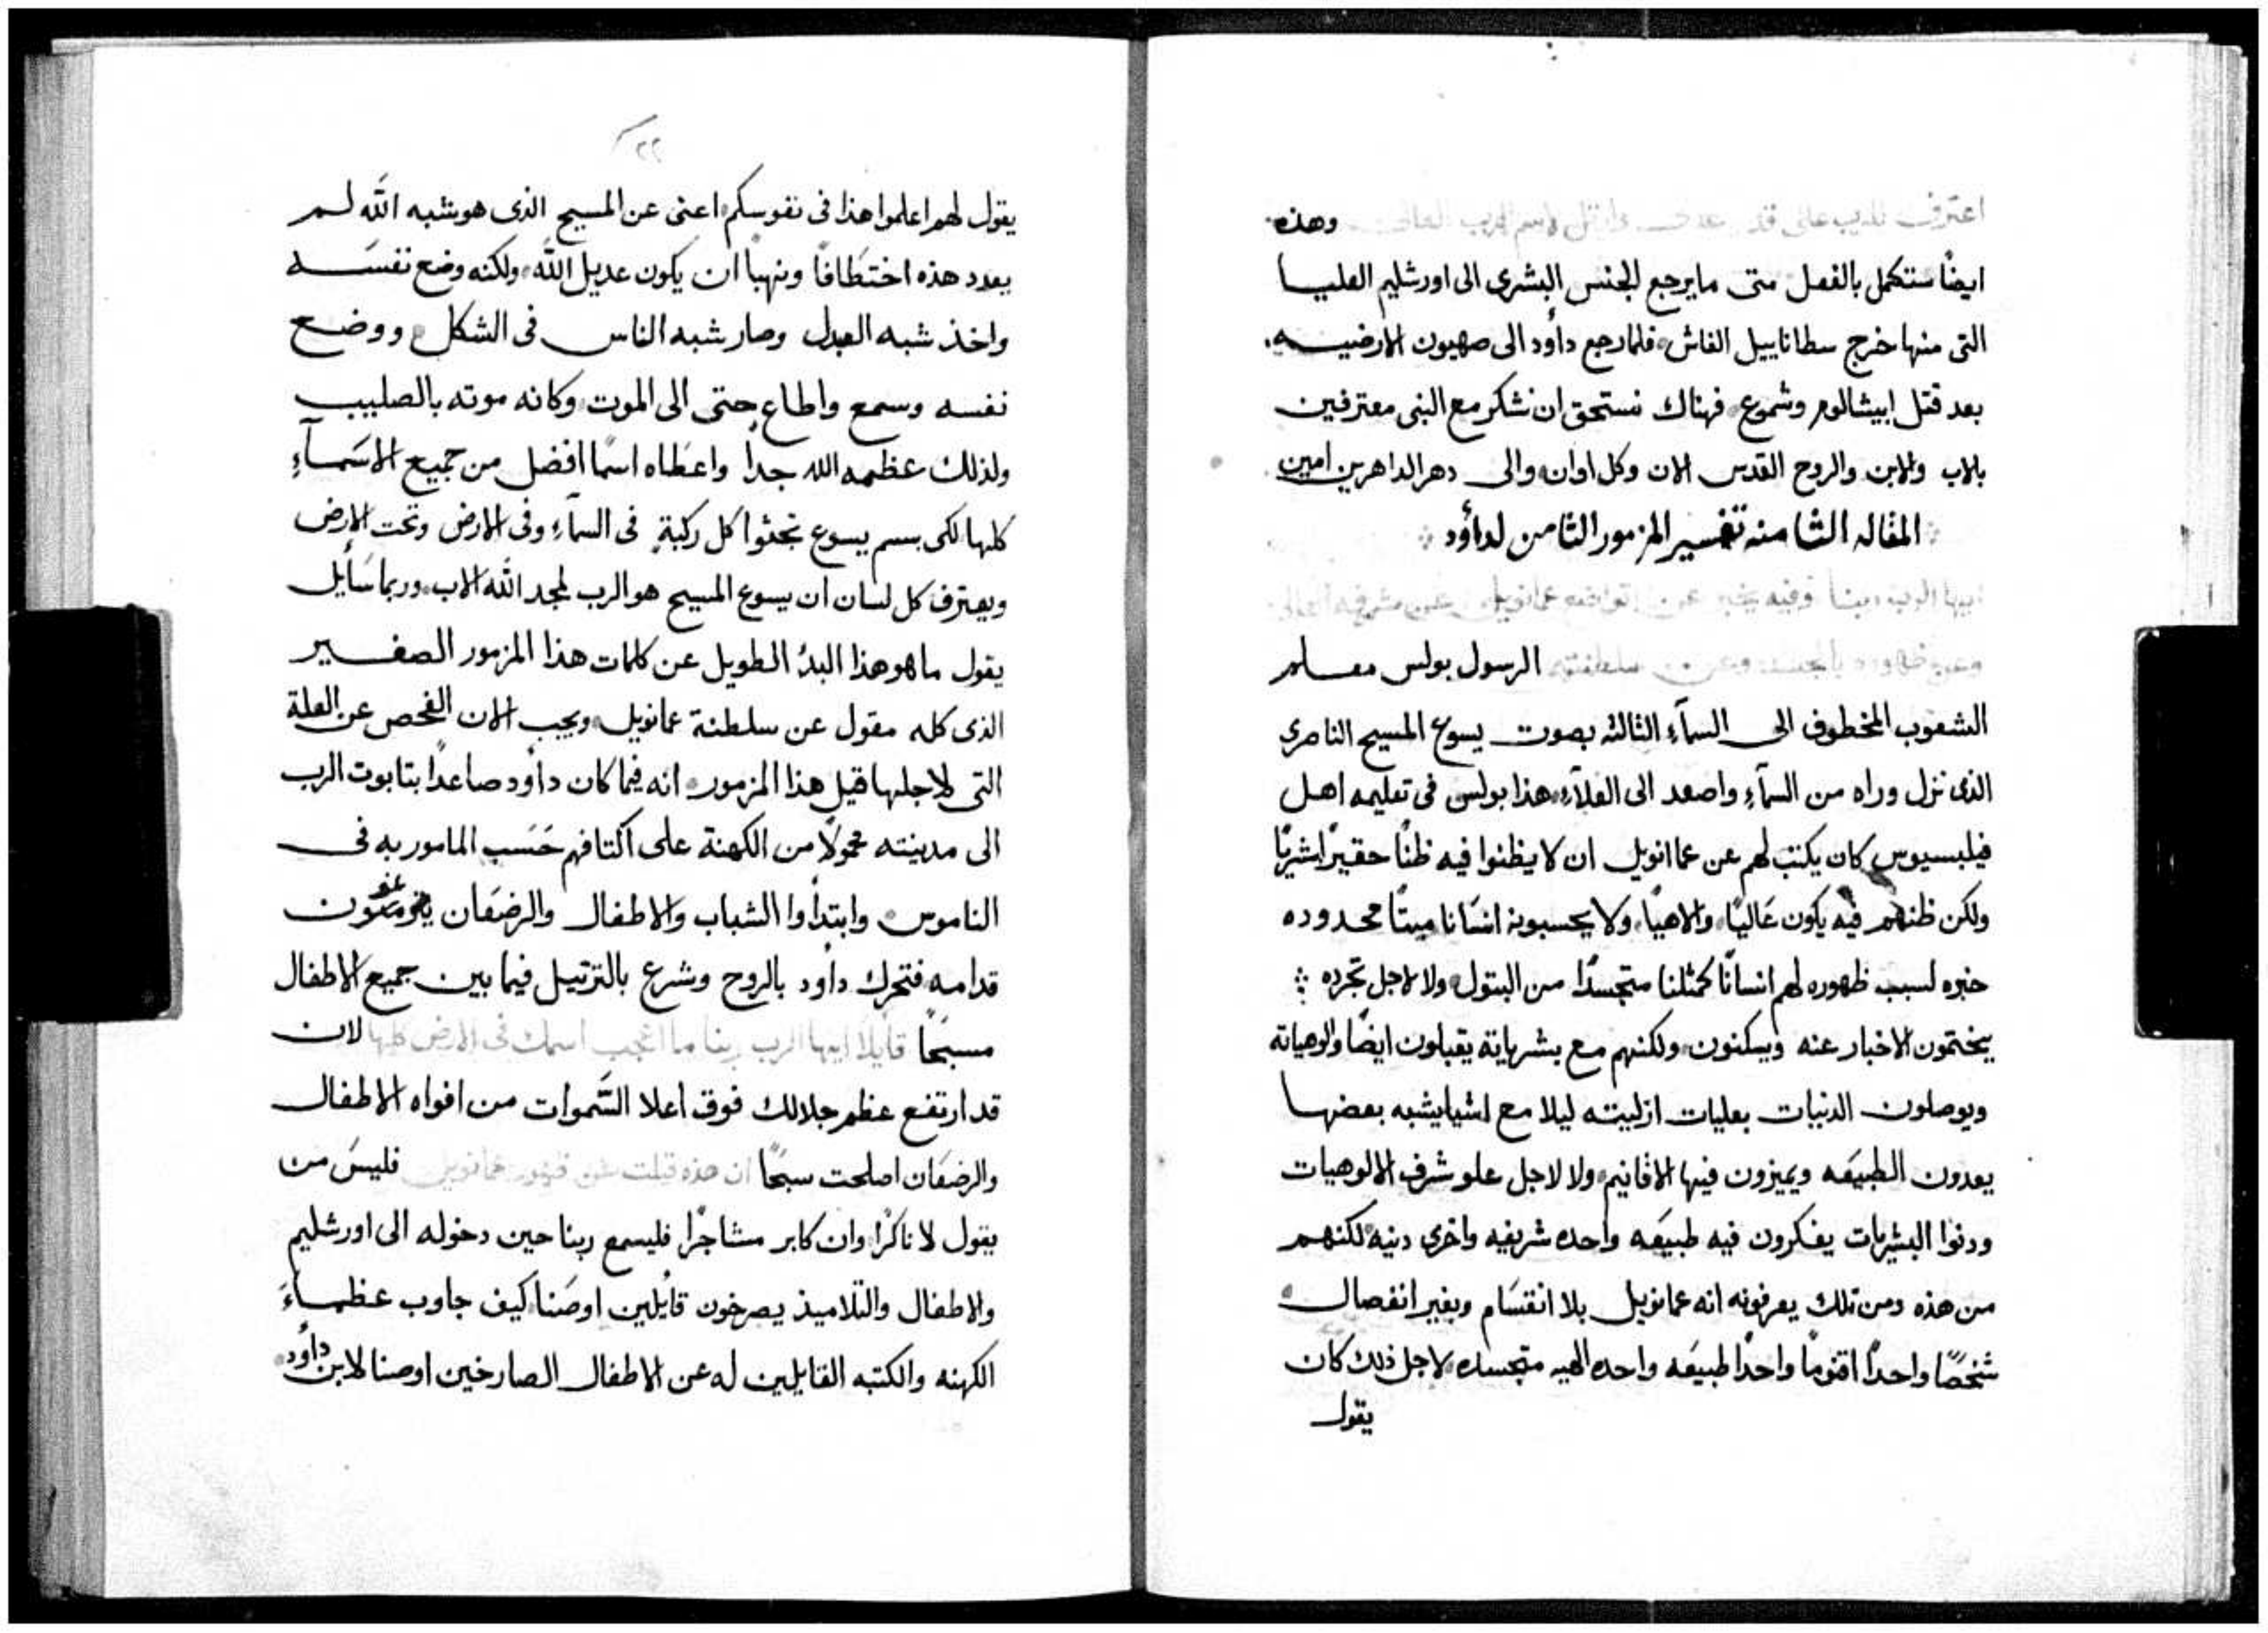 اعترف للرب على قدر عدله وارتل لاسم الرب العالي وهذه
ايضًا ستكمل بالفعل متى ما يرجع الجنس البشرى الى اورشليم العليا
التى منها خرج سطاناييل الغاش فلما رجع داود الى صهيون الارضيه
بعد قتل ابيشالوم وشموع فهناك نستحق ان نشكر مع النبى معترفين
بالاب والابن والروح القدس الان وكل اوان والى دهر الداهرين امين
المقاله الثامنه تفسير المزمور الثامن لداؤد
ايها الرب ربنا وفيه يخبر عن تواضع عمانويل وعن
وعن ظهوره بالجسد وعن سلطنته الرسول بولس معلم
الشعوب المخطوف الى السمآء الثالثه بصوت يسوع المسيح الناصرى
الذى نزل وراه من السمآء واصعد الى العلآء هذا بولس فى تعليمه اهل
فيلبسيوس كان يكتب لهم عن عماانويل ان لا يظنوا فيه ظنًا حقيرًا بشريًا
ولكن ظنهم فيه يكون عَاليًا والاهيًا ولا يحسبونه انسَانا ميتًا محدوده
خبره لسبب ظهوره لهم انسانًا كمثلنا متجسدًا من البتول ولا لاجل تجرده
يختمون الاخبار عنه ويسكنون ولكنهم مع بشرياته يقبلون ايضًا والوهياته
ويوصلون الدنيات بعليات ازليته ليلا مع اشيا يشبه بعضها
يعدون الطبيعَه ويميزون فيها الاقانيم ولا لاجل علو شرف الالوهيات
ودنوا البشريات يفكرون فيه طبيعَه واحده شريفيه واخرى دنيه لكنهم
من هذه ومن تلك يعرفونه انه عمانويل بلا انقسَام وبغير انفصال
شخصًا واحدًا اقنومًا واحدًا طبيعَه واحده الهيه متجسده لاجل ذلك كان
يقول
٢٢
يقول لهم اعلموا هذا فى نفوسكم اعنى عن المسيح الذى هو شبه الله لم
يعدد هذه اختطَافًا ونهبًا ان يكون عديل الله ولكنه وضع نفسَه
واخذ شبه العبد وصار شبه الناس فى الشكل ووضع
نفسه وسمع واطاع حتى الى الموت وكانه موته بالصليب
ولذلك عظمه الله جدا واعطَاه اسمًا افضل من جميع الاسَمآءِ
كلها لكى بسم يسوع تجثوا كل ركبةٍ فى السمآءِ وفى الارض وتحت الارض
ويعترف كل لسان ان يسوع المسيح هو الرب لمجد الله الاب وربما سَأيل
يقول ما هو هذا البدُ الطويل عن كلمات هذا المزمور الصغير
الذى كله مقول عن سلطنة عمانويل ويجب الان الفحص عن العلة
التى لاجلها قيل هذا المزمور انه فيما كان داود صاعدًا بتابوت الرب
الى مدينته محمولًا من الكهنة على اكتافهم حَسَب المامور به فى
الناموس وابتدأوا الشباب والاطفال والرضعَان
قدامه فتحرك داود بالروح وشرع بالترتيل فيما بين جميع الاطفال
مسبحًا قايلا ايها الرب ربنا ما اعجب اسمك فى الارض كلها لان
قد ارتفع عظم جلالك فوق اعلا السَّموات من افواه الاطفال
والرضعَان اصلحت سبحًا ان هذه قيلت عن ظهور عمانويل فليسَ من
يقول لا ناكرًا وان كابر مشاجرًا فليسمع ربنا حين دخوله الى اورشليم
والاطفال والتلاميذ يصرخون قايلين اوصَنا كيف جاوب عظماءَ
الكهنه والكتبه القايلين له عن الاطفال الصارخين اوصنا لابن داؤد